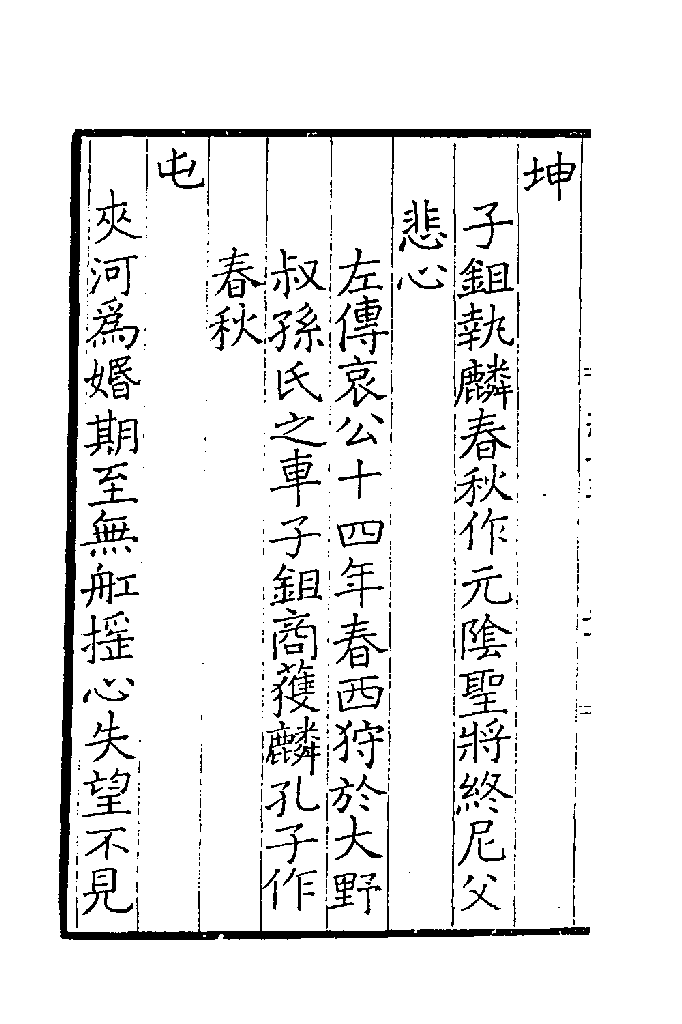 坤
子鉏執麟春秋作元陰聖將終尼父
悲心
左傳哀公十四年春西狩於大野
叔孫氏之車子鉏商獲麟孔子作
春秋
屯
夾河為婚期至無舡揺心失望不見